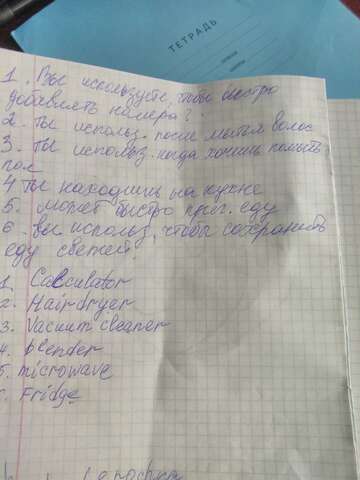 ТЕТРАДЬ
1. Вы используете, чтобы быстро
добавлять номера?
2. Ты использ. после мытья волос
3. Ты использ. когда хочешь помыть
пол
4 Ты находишь на кухне
5. может быстро приг. еду
6. Вы использ, чтобы сохранить
еду свежей.
1. Calculator
2. Hairdryer
3. Vacuum cleaner
4. blender
5. microwave
Fridge